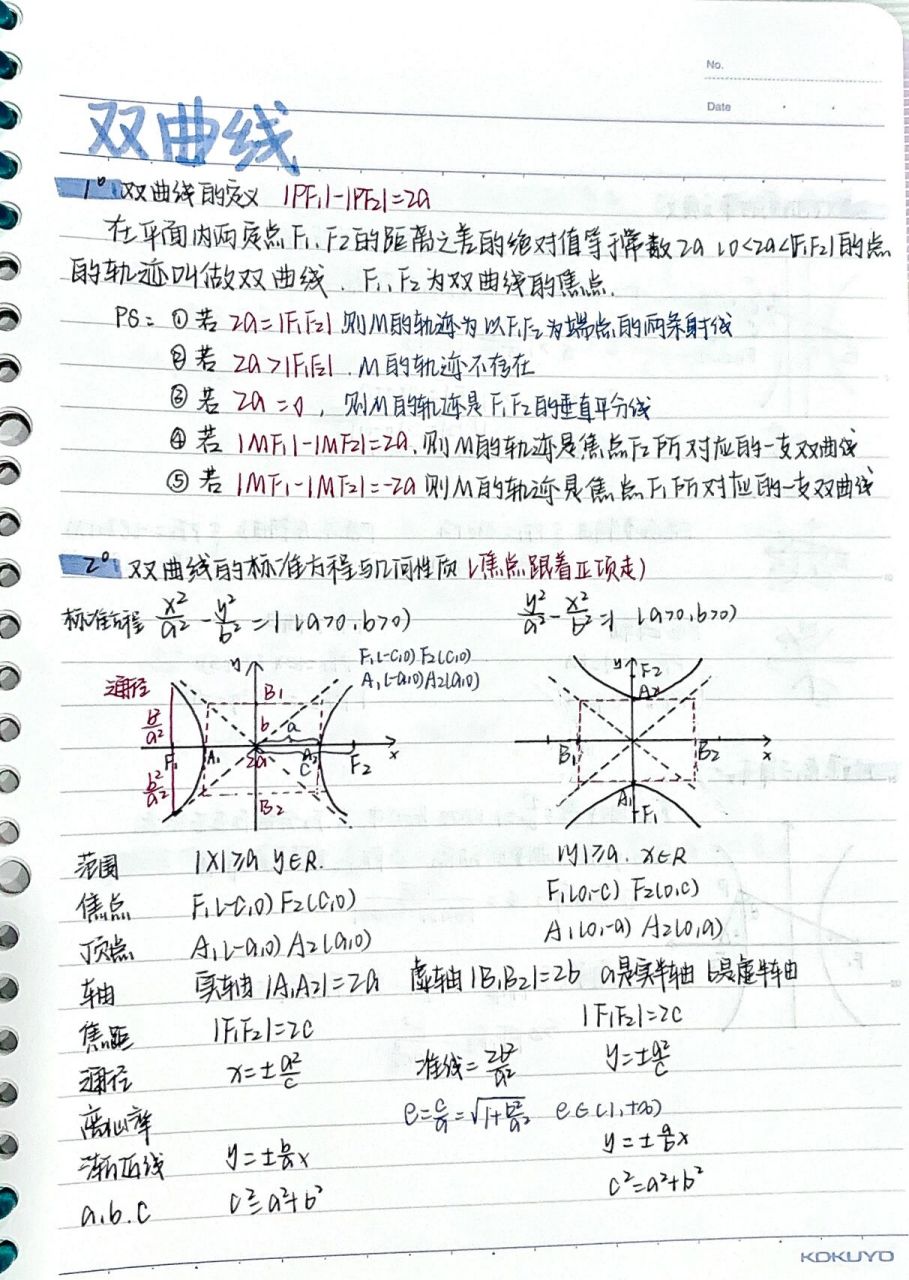 No.
Date
双曲线
1° 双曲线的定义 |PF₁|-|PF₂|=2a
在平面内两定点F₁、F₂的距离之差的绝对值等于常数2a(0<2a<|F₁F₂|的点
的轨迹叫做双曲线.F₁、F₂为双曲线的焦点.
PS: ①若 2a=|F₁F₂| 则M的轨迹为以F₁F₂为端点的两条射线
②若 2a>|F₁F₂|.M的轨迹不存在
③若 2a=0, 则M的轨迹是F₁F₂的垂直平分线
④若 |MF₁|-|MF₂|=2a.则M的轨迹是焦点F₂所对应的一支双曲线
⑤若 |MF₁-|MF₂|=-2a 则M的轨迹是焦点F₁所对应的一支双曲线
2° 双曲线的标准方程与几何性质(焦点跟着正项走)
标准方程 x²/a²-y²/b²=1(a>0,b>0) y²/a²-x²/b²=1(a>0,b>0)
F₁(-c,0) F₂(c,0)
A₁(-a,0) A₂(a,0)
通径 b²/a² b²/a² y B₁ b a F₁ A₁ 2a A₂ c F₂ x B₂
y F₂ A₂ B₁ B₂ x A₁ F₁
范围 |x|≥a y∈R. |y|≥a.x∈R
焦点 F₁(-c,0) F₂(c,0) F₁(0,-c) F₂(0,c)
顶点 A₁(-a,0) A₂(a,0) A₁(0,-a) A₂(0,a)
轴 实轴|A₁A₂|=2a 虚轴|B₁B₂|=2b a是实半轴 b是虚半轴
焦距 |F₁F₂|=2c |F₁F₂|=2c
通径 x=±a²/c 准线=2b²/a² y=±a²/c
离心率 e=c/a=√(1+b²/a²) e∈(1,+∞)
渐近线 y=±b/a x y=±a/b x
a.b.c c²=a²+b² c²=a²+b²
KOKUYO